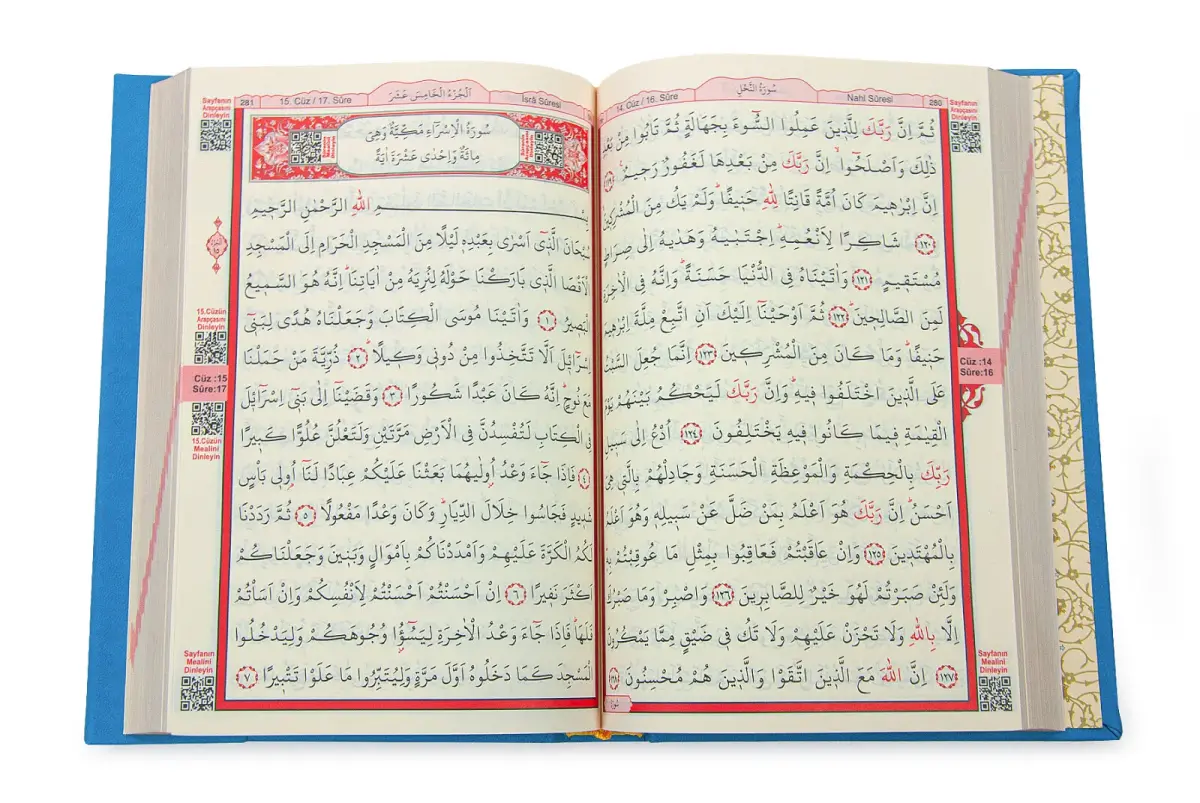 سُورَةُ النَّحْلِ
14. Cüz / 16. Sûre
Nahl Sûresi
280
Sayfanın
Arapçasını
Dinleyin
ثُمَّ اِنَّ رَبَّكَ لِلَّذٖينَ عَمِلُوا السُّٓوءَ بِجَهَالَةٍ ثُمَّ تَابُوا مِنْ بَعْدِ
ذٰلِكَ وَاَصْلَحُٓوا اِنَّ رَبَّكَ مِنْ بَعْدِهَا لَغَفُورٌ رَحٖيمٌ ﴿١١٩﴾
اِنَّ اِبْرٰهٖيمَ كَانَ اُمَّةً قَانِتًا لِلّٰهِ حَنٖيفًا وَلَمْ يَكُ مِنَ الْمُشْرِكٖينَ
﴿١٢٠﴾ شَاكِرًا لِاَنْعُمِهٖ اِجْتَبٰيهُ وَهَدٰيهُ اِلٰى صِرَاطٍ
مُسْتَقٖيمٍ ﴿١٢١﴾ وَاٰتَيْنَاهُ فِى الدُّنْيَا حَسَنَةً وَاِنَّهُ فِى الْاٰخِرَةِ
لَمِنَ الصَّالِحٖينَ ﴿١٢٢﴾ ثُمَّ اَوْحَيْنَٓا اِلَيْكَ اَنِ اتَّبِعْ مِلَّةَ اِبْرٰهٖيمَ
حَنٖيفًا وَمَا كَانَ مِنَ الْمُشْرِكٖينَ ﴿١٢٣﴾ اِنَّمَا جُعِلَ السَّبْتُ
عَلَى الَّذٖينَ اخْتَلَفُوا فٖيهِ وَاِنَّ رَبَّكَ لَيَحْكُمُ بَيْنَهُمْ يَوْمَ
الْقِيٰمَةِ فٖيمَا كَانُوا فٖيهِ يَخْتَلِفُونَ ﴿١٢٤﴾ اُدْعُ اِلٰى سَبٖيلِ
رَبِّكَ بِالْحِكْمَةِ وَالْمَوْعِظَةِ الْحَسَنَةِ وَجَادِلْهُمْ بِالَّتٖى هِىَ
اَحْسَنُ اِنَّ رَبَّكَ هُوَ اَعْلَمُ بِمَنْ ضَلَّ عَنْ سَبٖيلِهٖ وَهُوَ اَعْلَمُ
بِالْمُهْتَدٖينَ ﴿١٢٥﴾ وَاِنْ عَاقَبْتُمْ فَعَاقِبُوا بِمِثْلِ مَا عُوقِبْتُمْ بِهٖ
وَلَئِنْ صَبَرْتُمْ لَهُوَ خَيْرٌ لِلصَّابِرٖينَ ﴿١٢٦﴾ وَاصْبِرْ وَمَا صَبْرُكَ
اِلَّا بِاللّٰهِ وَلَا تَحْزَنْ عَلَيْهِمْ وَلَا تَكُ فٖى ضَيْقٍ مِمَّا يَمْكُرُونَ
﴿١٢٧﴾ اِنَّ اللّٰهَ مَعَ الَّذٖينَ اتَّقَوْا وَالَّذٖينَ هُمْ مُحْسِنُونَ ﴿١٢٨﴾
Cüz :14
Sûre:16
Sayfanın
Mealini
Dinleyin
281
15. Cüz / 17. Sûre
اَلْجُزْءُ الْخَامِسَ عَشَرَ
İsrâ Sûresi
Sayfanın
Arapçasını
Dinleyin
سُورَةُ الْاِسْرَٓاءِ مَكِّيَّةٌ وَهِىَ
مِائَةٌ وَاِحْدٰى عَشْرَةَ اٰيَةً
بِسْمِ اللّٰهِ الرَّحْمٰنِ الرَّحٖيمِ
سُبْحَانَ الَّذٖٓى اَسْرٰى بِعَبْدِهٖ لَيْلًا مِنَ الْمَسْجِدِ الْحَرَامِ اِلَى الْمَسْجِدِ
الْاَقْصَا الَّذٖى بَارَكْنَا حَوْلَهُ لِنُرِيَهُ مِنْ اٰيَاتِنَا اِنَّهُ هُوَ السَّمٖيعُ
الْبَصٖيرُ ﴿١﴾ وَاٰتَيْنَا مُوسَى الْكِتَابَ وَجَعَلْنَاهُ هُدًى لِبَنٖٓى
اِسْرَٓائٖلَ اَلَّا تَتَّخِذُوا مِنْ دُونٖى وَكٖيلًا ﴿٢﴾ ذُرِّيَّةَ مَنْ حَمَلْنَا
مَعَ نُوحٍ اِنَّهُ كَانَ عَبْدًا شَكُورًا ﴿٣﴾ وَقَضَيْنَٓا اِلٰى بَنٖٓى اِسْرَٓائٖلَ
فِى الْكِتَابِ لَتُفْسِدُنَّ فِى الْاَرْضِ مَرَّتَيْنِ وَلَتَعْلُنَّ عُلُوًّا كَبٖيرًا
﴿٤﴾ فَاِذَا جَٓاءَ وَعْدُ اُولٰيهُمَا بَعَثْنَا عَلَيْكُمْ عِبَادًا لَنَٓا اُولٖى بَاْسٍ
شَدٖيدٍ فَجَاسُوا خِلَالَ الدِّيَارِ وَكَانَ وَعْدًا مَفْعُولًا ﴿٥﴾ ثُمَّ رَدَدْنَا
لَكُمُ الْكَرَّةَ عَلَيْهِمْ وَاَمْدَدْنَاكُمْ بِاَمْوَالٍ وَبَنٖينَ وَجَعَلْنَاكُمْ
اَكْثَرَ نَفٖيرًا ﴿٦﴾ اِنْ اَحْسَنْتُمْ اَحْسَنْتُمْ لِاَنْفُسِكُمْ وَاِنْ اَسَاْتُمْ
فَلَهَا فَاِذَا جَٓاءَ وَعْدُ الْاٰخِرَةِ لِيَسُٓؤُ۫ا وُجُوهَكُمْ وَلِيَدْخُلُوا
الْمَسْجِدَ كَمَا دَخَلُوهُ اَوَّلَ مَرَّةٍ وَلِيُتَبِّرُوا مَا عَلَوْا تَتْبٖيرًا ﴿٧﴾
15.Cüzün
Arapçasını
Dinleyin
Cüz :15
Sûre:17
15.Cüzün
Mealini
Dinleyin
Sayfanın
Mealini
Dinleyin